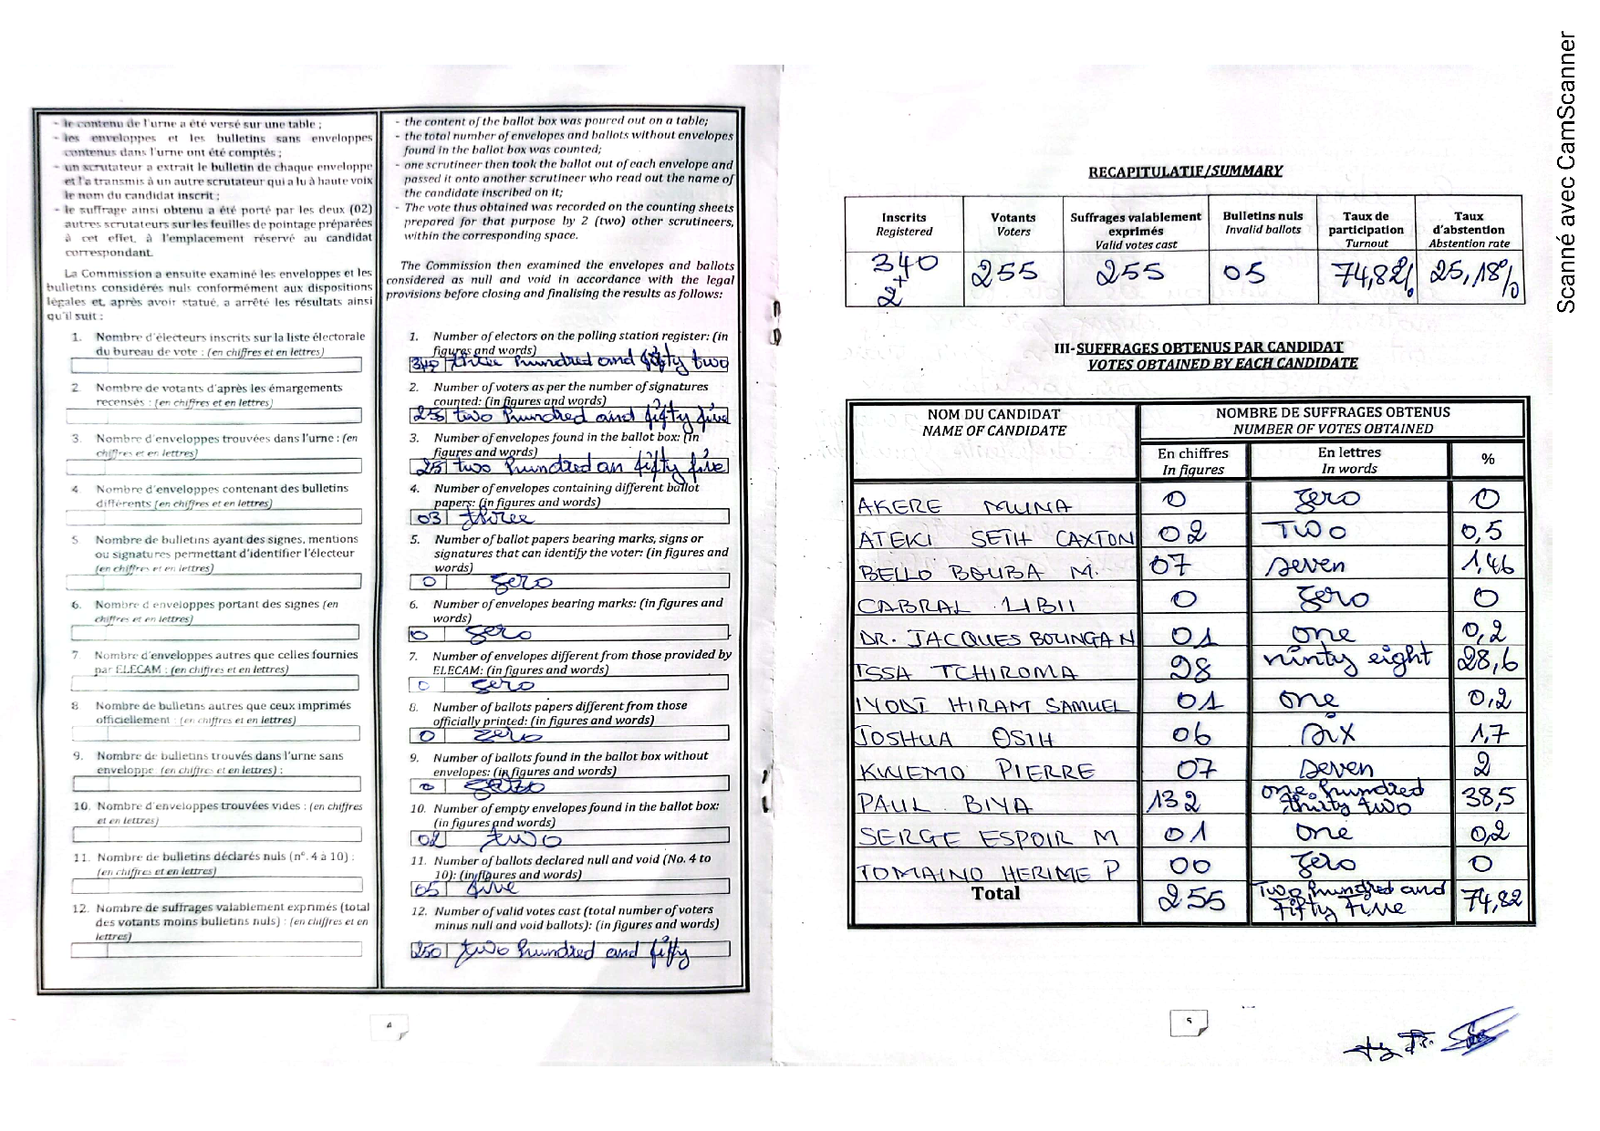 - le contenu de l'urne a été versé sur une table ;
- les enveloppes et les bulletins sans enveloppes
contenus dans l'urne ont été comptés ;
- un scrutateur a extrait le bulletin de chaque enveloppe
et l'a transmis à un autre scrutateur qui a lu à haute voix
le nom du candidat inscrit ;
- le suffrage ainsi obtenu a été porté par les deux (02)
autres scrutateurs sur les feuilles de pointage préparées
à cet effet, à l'emplacement réservé au candidat
correspondant.
La Commission a ensuite examiné les enveloppes et les
bulletins considérés nuls conformément aux dispositions
légales et, après avoir statué, a arrêté les résultats ainsi
qu'il suit :
1. Nombre d'électeurs inscrits sur la liste électorale
du bureau de vote : (en chiffres et en lettres)
2. Nombre de votants d'après les émargements
recensés : (en chiffres et en lettres)
3. Nombre d'enveloppes trouvées dans l'urne : (en
chiffres et en lettres)
4 Nombre d'enveloppes contenant des bulletins
différents (en chiffres et en lettres)
5 Nombre de bulletins ayant des signes, mentions
ou signatures permettant d'identifier l'électeur
(en chiffres et en lettres)
6. Nombre d enveloppes portant des signes (en
chiffres et en lettres)
7 Nombre d'enveloppes autres que celles fournies
par ELECAM : (en chiffres et en lettres)
8 Nombre de bulletins autres que ceux imprimés
officiellement : (en chiffres et en lettres)
9. Nombre de bulletins trouvés dans l'urne sans
enveloppe (en chiffres et en lettres) :
10. Nombre d'enveloppes trouvées vides : (en chiffres
et en lettres)
11. Nombre de bulletins déclarés nuls (n°. 4 à 10) :
(en chiffres et en lettres)
12. Nombre de suffrages valablement exprimés (total
des votants moins bulletins nuls) : (en chiffres et en
lettres)
4
- the content of the ballot box was poured out on a table;
- the total number of envelopes and ballots without envelopes
found in the ballot box was counted;
- one scrutineer then took the ballot out of each envelope and
passed it onto another scrutineer who read out the name of
the candidate inscribed on it;
- The vote thus obtained was recorded on the counting sheets
prepared for that purpose by 2 (two) other scrutineers,
within the corresponding space.
The Commission then examined the envelopes and ballots
considered as null and void in accordance with the legal
provisions before closing and finalising the results as follows:
1. Number of electors on the polling station register: (in
figures and words)
three hundred and fifty two
2. Number of voters as per the number of signatures
counted: (in figures and words)
255 two hundred and fifty five
3. Number of envelopes found in the ballot box: (in
figures and words)
two hundred an fifty five
4. Number of envelopes containing different ballot
papers: (in figures and words)
03 three
5. Number of ballot papers bearing marks, signs or
signatures that can identify the voter: (in figures and
words)
0 zero
6. Number of envelopes bearing marks: (in figures and
words)
0 zero
7. Number of envelopes different from those provided by
ELECAM: (in figures and words)
0 zero
8. Number of ballots papers different from those
officially printed: (in figures and words)
0 zero
9. Number of ballots found in the ballot box without
envelopes: (in figures and words)
0 zero
10. Number of empty envelopes found in the ballot box:
(in figures and words)
02 two
11. Number of ballots declared null and void (No. 4 to
10): (in figures and words)
05 five
12. Number of valid votes cast (total number of voters
minus null and void ballots): (in figures and words)
250 two hundred and fifty
RECAPITULATIF/SUMMARY
Inscrits Registered Votants Voters Suffrages valablement exprimés Valid votes cast Bulletins nuls Invalid ballots Taux de participation Turnout Taux d'abstention Abstention rate
340 +2 255 255 05 74,82% 25,18%
III-SUFFRAGES OBTENUS PAR CANDIDAT
VOTES OBTAINED BY EACH CANDIDATE
NOM DU CANDIDAT NOMBRE DE SUFFRAGES OBTENUS
NAME OF CANDIDATE NUMBER OF VOTES OBTAINED
En chiffres En lettres %
In figures In words
AKERE MUNA 0 zero 0
ATEKI SETH CAXTON 02 TWO 0,5
BELLO BOUBA M. 07 seven 1,46
CABRAL LIBII 0 zero 0
DR. JACQUES BOUNGAN 01 one 0,2
ISSA TCHIROMA 98 ninty eight 28,6
IYODI HIRAM SAMUEL 01 one 0,2
JOSHUA OSIH 06 six 1,7
KWEMO PIERRE 07 seven 2
PAUL BIYA 132 one hundred thirty two 38,5
SERGE ESPOIR M 01 one 0,2
TOMAINO HERIME P 00 zero 0
Total 255 Two hundred and Fifty Five 74,82
5
Scanné avec CamScanner